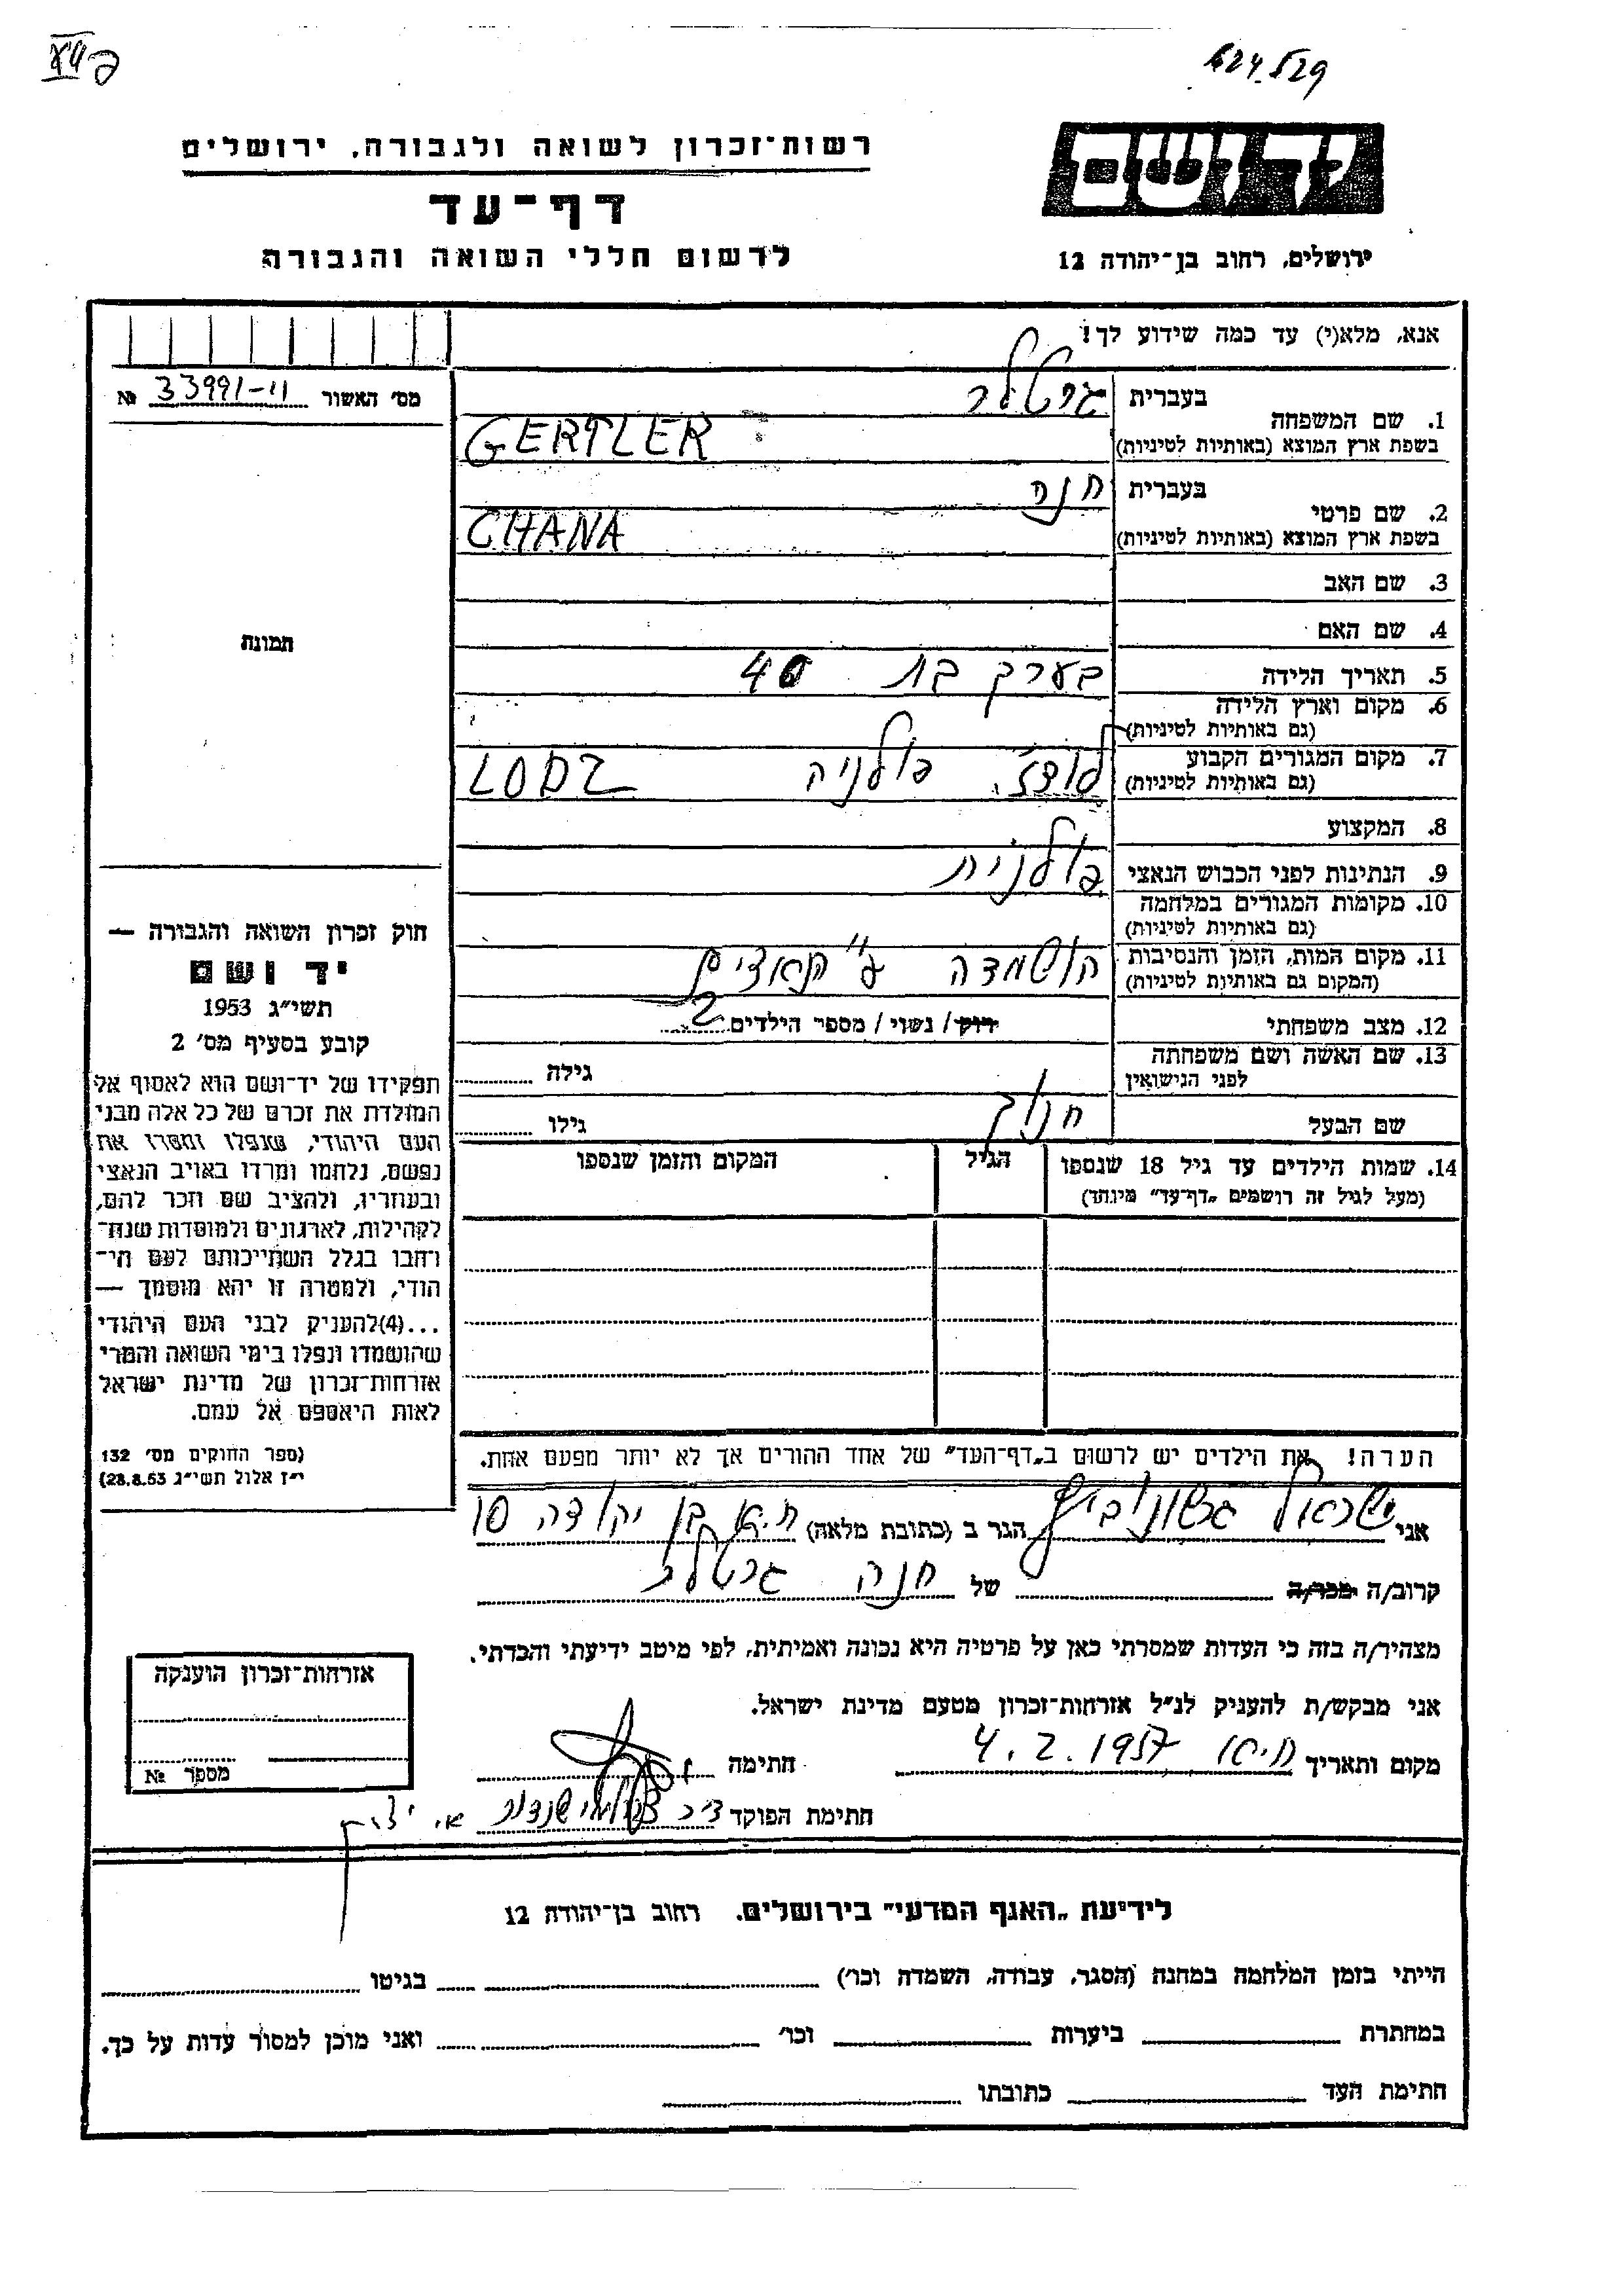 624.529
יד ושם
ירושלים, רחוב בן־יהודה 12
רשות־זכרון לשואה ולגבורה, ירושלים
דף־עד
לרשום חללי השואה והגבורה
אנא, מלא(י) עד כמה שידוע לך!
מס׳ האשור № 33991-11
1. שם המשפחה
בעברית גרטלר
בשפת ארץ המוצא (באותיות לטיניות) GERTLER
2. שם פרטי
בעברית חנה
בשפת ארץ המוצא (באותיות לטיניות) CHANA
3. שם האב
4. שם האם
5. תאריך הלידה בערך בת 40
6. מקום וארץ הלידה
(גם באותיות לטיניות)
7. מקום המגורים הקבוע לודז׳ פולניה LODZ
(גם באותיות לטיניות)
8. המקצוע
9. הנתינות לפני הכבוש הנאצי פולנית
10. מקומות המגורים במלחמה
(גם באותיות לטיניות)
11. מקום המות, הזמן והנסיבות הושמדה ע״ הנאצים
(המקום גם באותיות לטיניות)
12. מצב משפחתי רוק/ נשוי/ מספר הילדים 2
13. שם האשה ושם משפחתה
לפני הנישואין
גילה
שם הבעל חנוך גילו
14. שמות הילדים עד גיל 18 שנספו
(מעל לגיל זה רושמים „דף־עד״ מיוחד)
הגיל
המקום והזמן שנספו
הערה! את הילדים יש לרשום ב„דף־העד״ של אחד ההורים אך לא יותר מפעם אחת.
תמונה
חוק זכרון השואה והגבורה —
יד ושם
תשי״ג 1953
קובע בסעיף מס׳ 2
תפקידו של יד־ושם הוא לאסוף אל
המולדת את זכרם של כל אלה מבני
העם היהודי, שנפלו ומסרו את
נפשם, נלחמו ומרדו באויב הנאצי
ובעוזריו, ולהציב שם וזכר להם,
לקהילות, לארגונים ולמוסדות שנח־
רחבו בגלל השתייכותם לעם הי־
הודי, ולמטרה זו יהא מוסמך —
...(4)להעניק לבני העם היהודי
שהושמדו ונפלו בימי השואה והמרי
אזרחות־זכרון של מדינת ישראל
לאות היאספם אל עמם.
(ספר החוקים מס׳ 132
י״ז אלול תשי״ג 28.8.53)
אני ישראל גרשונוביץ הגר ב (כתובת מלאה) ת.א. בן יהודה 10
קרוב/ה מכר/ה של חנה גרטלר
מצהיר/ה בזה כי העדות שמסרתי כאן על פרטיה היא נכונה ואמיתית, לפי מיטב ידיעתי והכרתי.
אני מבקש/ת להעניק לנ״ל אזרחות־זכרון מטעם מדינת ישראל.
מקום ותאריך ת.א 4.2.1957 חתימה
חתימת הפוקד
אזרחות־זכרון הוענקה
מספר №
לידיעת „האגף המדעי״ בירושלים. רחוב בן־יהודה 12
הייתי בזמן המלחמה במחנה (הסגר, עבודה, השמדה וכו׳) בגיטו
במחתרת ביערות וכו׳ ואני מוכן למסור עדות על כך.
חתימת העד כתובתו